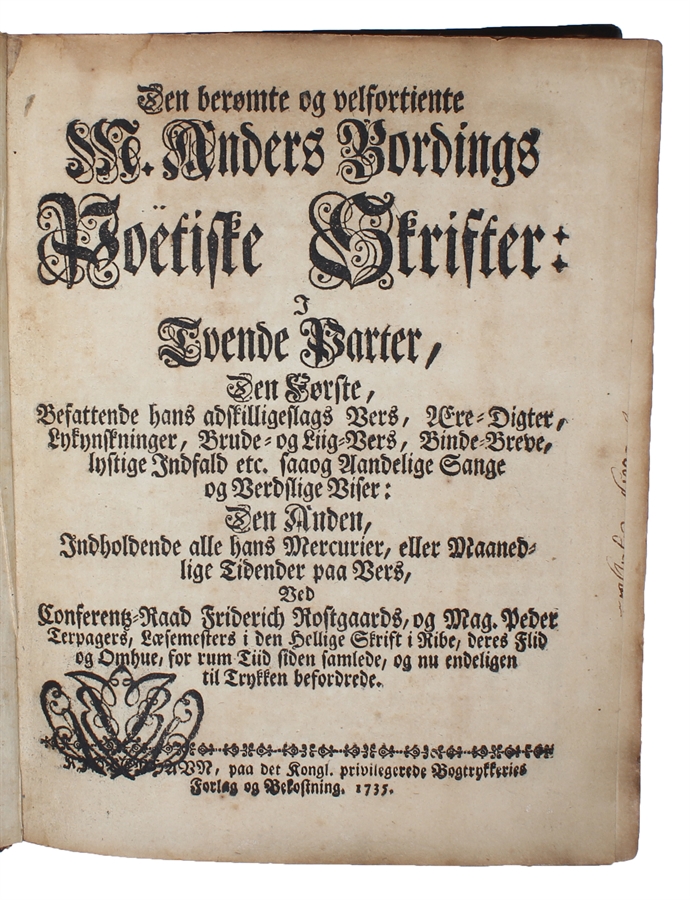 Den berømte og velfortiente
M. Anders Bordings
Poëtiske Skrifter:
I
Tvende Parter,
Den Første,
Befattende hans adskilligeslags Vers, Ære-Digter,
Lykynskninger, Brude- og Liig-Vers, Binde-Breve,
lystige Indfald etc. saaog Aandelige Sange
og Verdslige Viser:
Den Anden,
Indholdende alle hans Mercurier, eller Maaned-
lige Tidender paa Vers,
Ved
Conferentz-Raad Friderich Rostgaards, og Mag. Peder
Terpagers, Læsemesters i den Hellige Skrift i Ribe, deres Flid
og Omhue, for rum Tiid siden samlede, og nu endeligen
til Trykken befordrede.
paa det Kongl. privilegerede Bogtrykkeries
Forlag og Bekostning. 1735.